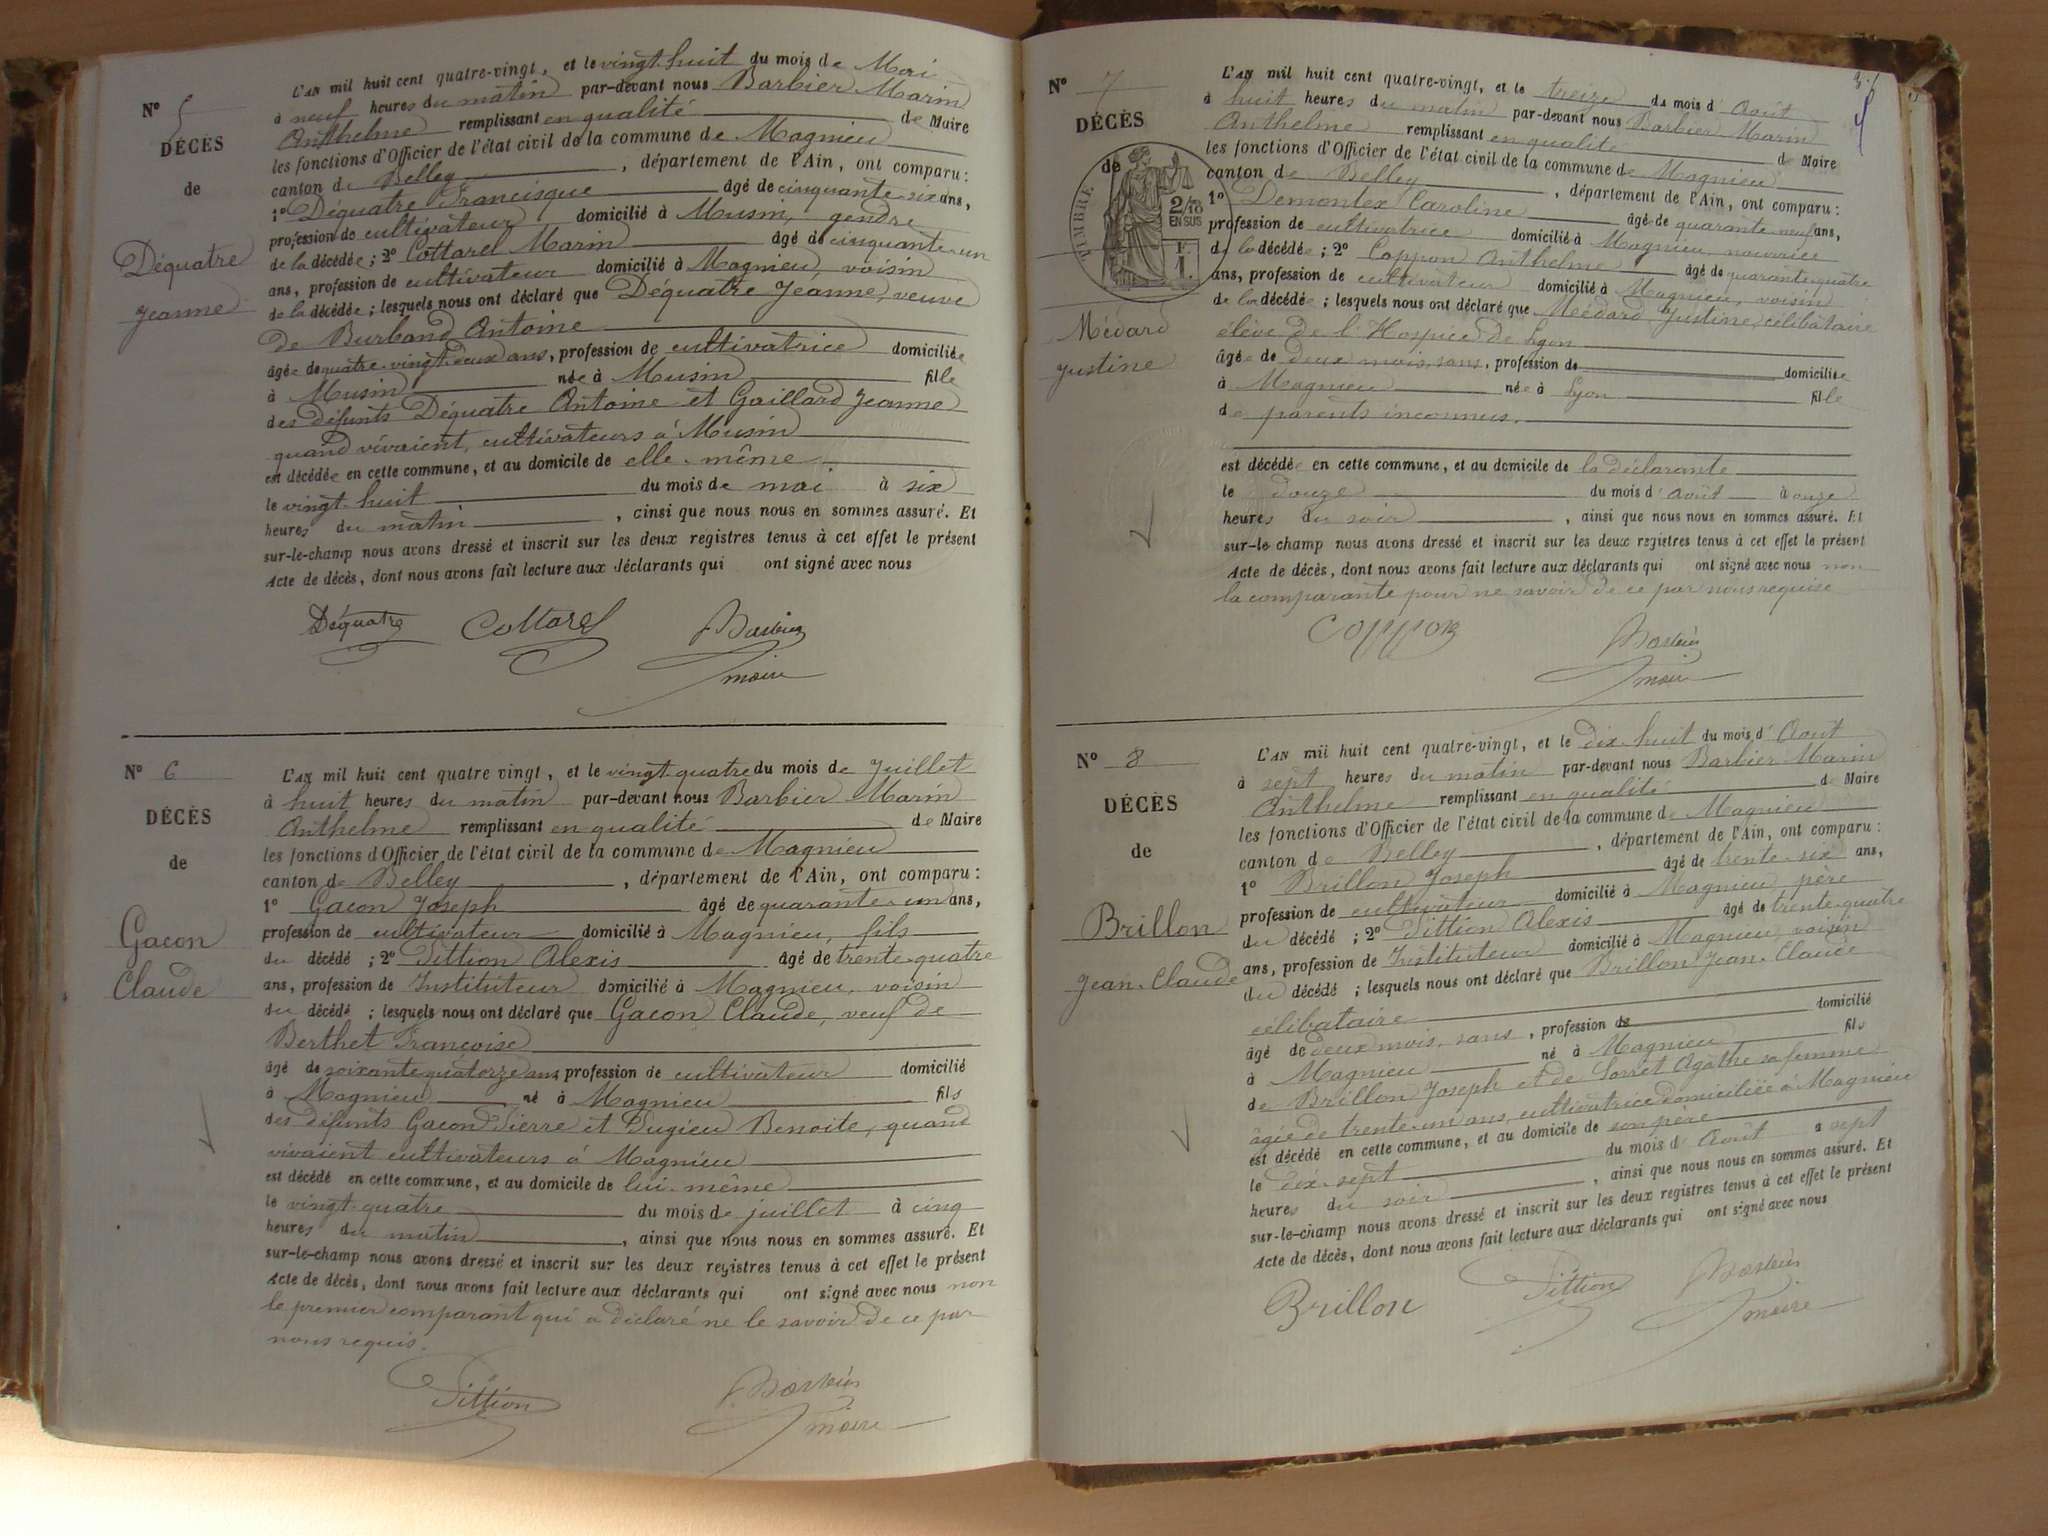 N° 5
DÉCÈS
de
Déquatre
Jeanne
L'AN mil huit cent quatre-vingt, et le vingt-huit du mois de Mai
à neuf heures du matin par-devant nous Barbier Marin
Anthelme remplissant en qualité de Maire
les fonctions d'Officier de l'état civil de la commune de Magnieu
canton de Belley, département de l'Ain, ont comparu :
1° Déquatre Francisque âgé de cinquante-six ans,
profession de cultivateur domicilié à Musin, gendre
de la décédée ; 2° Cottarel Marin âgé de cinquante-un
ans, profession de cultivateur domicilié à Magnieu, voisin
de la décédée ; lesquels nous ont déclaré que Déquatre Jeanne, veuve
de Burband Antoine
âgée de quatre-vingt-deux ans, profession de cultivatrice domiciliée
à Musin née à Musin fille
des défunts Déquatre Antoine et Gaillard Jeanne
quand vivaient, cultivateurs à Musin
est décédée en cette commune, et au domicile de elle-même
le vingt-huit du mois de mai à six
heures du matin, ainsi que nous nous en sommes assuré. Et
sur-le-champ nous avons dressé et inscrit sur les deux registres tenus à cet effet le présent
Acte de décès, dont nous avons fait lecture aux déclarants qui ont signé avec nous
Déquatre Cottarel Barbier
maire
N° 6
DÉCÈS
de
Gacon
Claude
L'AN mil huit cent quatre vingt, et le vingt-quatre du mois de Juillet
à huit heures du matin par-devant nous Barbier Marin
Anthelme remplissant en qualité de Maire
les fonctions d'Officier de l'état civil de la commune de Magnieu
canton de Belley, département de l'Ain, ont comparu :
1° Gacon Joseph âgé de quarante-un ans,
profession de cultivateur domicilié à Magnieu, fils
du décédé ; 2° Pittion Alexis âgé de trente-quatre
ans, profession de Instituteur domicilié à Magnieu, voisin
du décédé ; lesquels nous ont déclaré que Gacon Claude, veuf de
Berthet Françoise
âgé de soixante quatorze ans, profession de cultivateur domicilié
à Magnieu né à Magnieu fils
des défunts Gacon Pierre et Pugieu Benoite, quand
vivaient cultivateurs à Magnieu
est décédé en cette commune, et au domicile de lui-même
le vingt-quatre du mois de juillet à cinq
heures du matin, ainsi que nous nous en sommes assuré. Et
sur-le-champ nous avons dressé et inscrit sur les deux registres tenus à cet effet le présent
Acte de décès, dont nous avons fait lecture aux déclarants qui ont signé avec nous non
le premier comparant qui a déclaré ne le savoir de ce par
nous requis.
Pittion Barbier
maire
N° 7
DÉCÈS
de
TIMBRE
2/10
EN SUS
F
1.
Médard
Justine
L'AN mil huit cent quatre-vingt, et le treize du mois d'Août
à huit heures du matin par-devant nous Barbier Marin
Anthelme remplissant en qualité de Maire
les fonctions d'Officier de l'état civil de la commune de Magnieu
canton de Belley, département de l'Ain, ont comparu :
1° Demontex Caroline âgé de quarante-neuf ans,
profession de cultivatrice domicilié à Magnieu, nourrice
de la décédée ; 2° Coppon Anthelme âgé de quarante quatre
ans, profession de cultivateur domicilié à Magnieu, voisin
de la décédée ; lesquels nous ont déclaré que Médard Justine, célibataire
élève de l'Hospice de Lyon
âgée de deux mois, sans, profession de domiciliée
à Magnieu née à Lyon fille
de parents inconnus.
est décédée en cette commune, et au domicile de la déclarante
le douze du mois d'Août à onze
heures du soir, ainsi que nous nous en sommes assuré. Et
sur-le champ nous avons dressé et inscrit sur les deux registres tenus à cet effet le présent
Acte de décès, dont nous avons fait lecture aux déclarants qui ont signé avec nous non
la comparante pour ne savoir de ce par nous requise
Coppon Barbier
maire
N° 8
DÉCÈS
de
Brillon
Jean-Claude
L'AN mil huit cent quatre-vingt, et le dix-huit du mois d'Aout
à sept heures du matin par-devant nous Barbier Marin
Anthelme remplissant en qualité de Maire
les fonctions d'Officier de l'état civil de la commune de Magnieu
canton de Belley, département de l'Ain, ont comparu :
1° Brillon Joseph âgé de trente-six ans,
profession de cultivateur domicilié à Magnieu, père
du décédé ; 2° Pittion Alexis âgé de trente-quatre
ans, profession de Instituteur domicilié à Magnieu, voisin
du décédé ; lesquels nous ont déclaré que Brillon Jean-Claude
célibataire
âgé de deux mois, sans, profession de domicilié
à Magnieu né à Magnieu fils
de Brillon Joseph et de Sorret Agathe sa femme
âgée de trente-un ans, cultivatrice domiciliée à Magnieu
est décédé en cette commune, et au domicile de son père
le dix-sept du mois d'Août à sept
heures du soir, ainsi que nous nous en sommes assuré. Et
sur-le-champ nous avons dressé et inscrit sur les deux registres tenus à cet effet le présent
Acte de décès, dont nous avons fait lecture aux déclarants qui ont signé avec nous
Brillon Pittion Barbier
maire